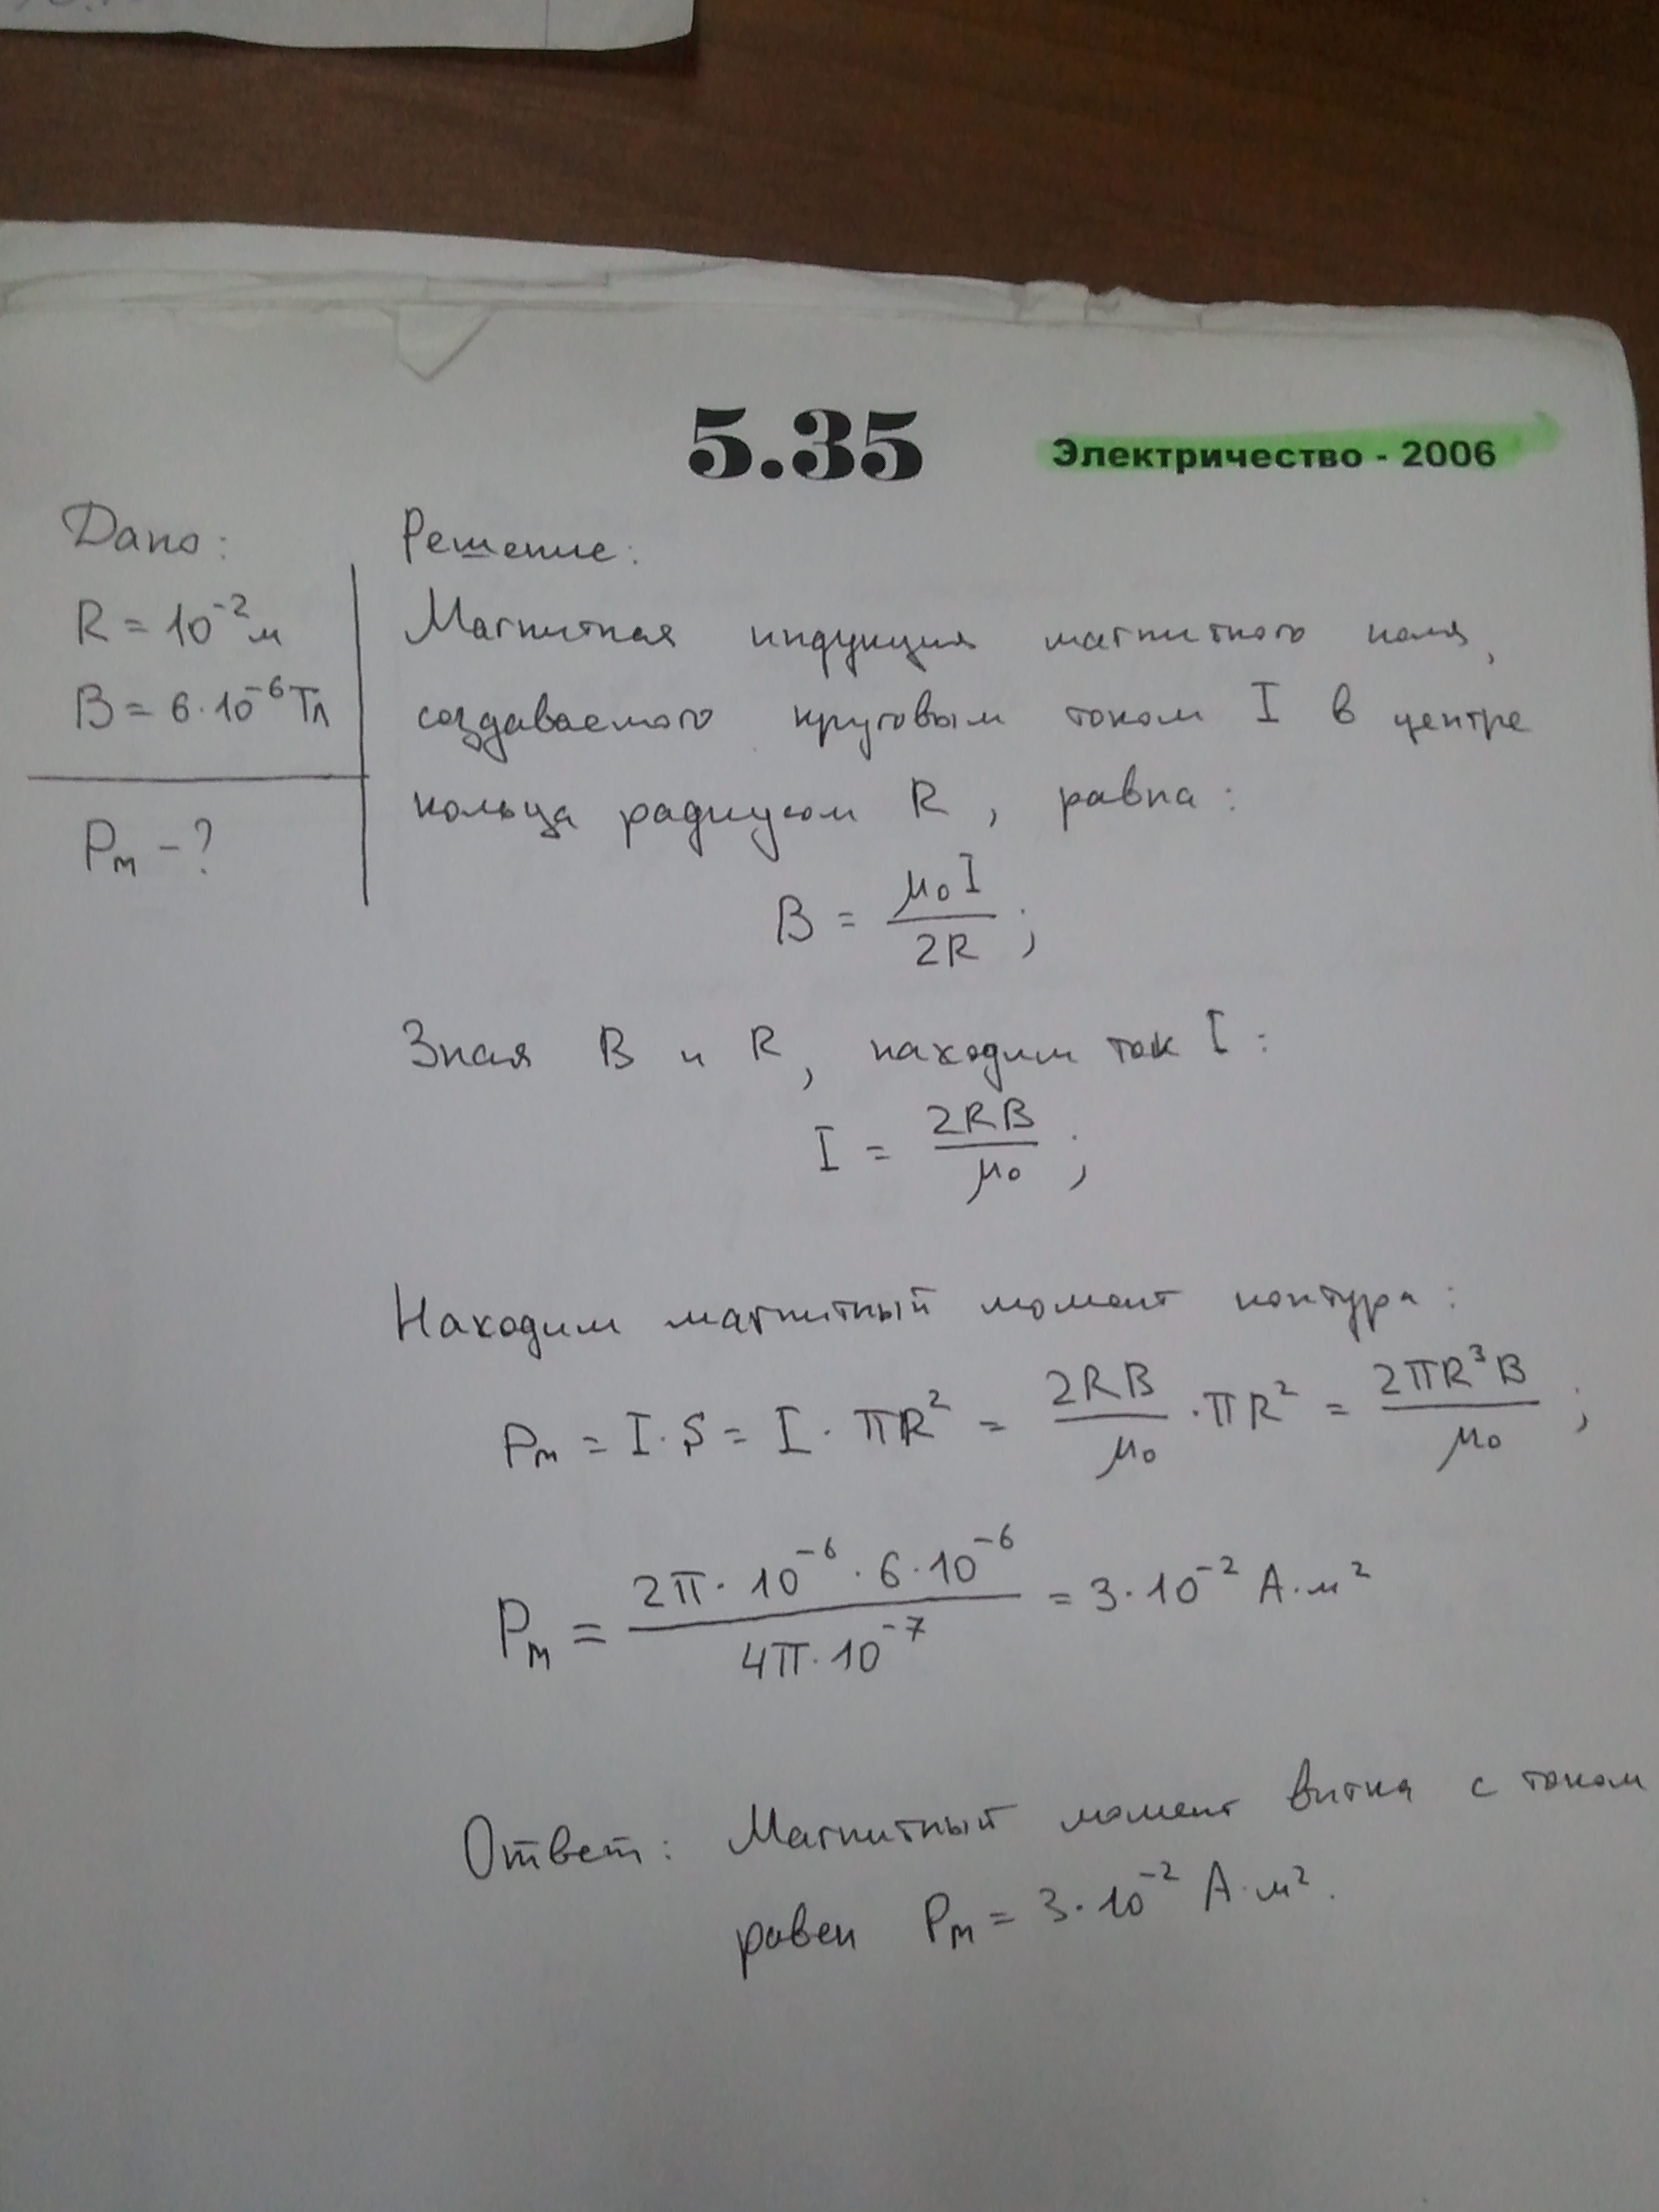 5.35 Электричество - 2006
Дано:
R = 10⁻² м
B = 6·10⁻⁶ Тл
Pₘ - ?
Решение:
Магнитная индукция магнитного поля,
создаваемого круговым током I в центре
кольца радиусом R, равна:
B = μ₀I / 2R ;
Зная B и R, находим ток I:
I = 2RB / μ₀ ;
Находим магнитный момент контура:
Pₘ = I·S = I·πR² = 2RB / μ₀ · πR² = 2πR³B / μ₀ ;
Pₘ = 2π·10⁻⁶·6·10⁻⁶ / 4π·10⁻⁷ = 3·10⁻² А·м²
Ответ: Магнитный момент витка с током
равен Pₘ = 3·10⁻² А·м².